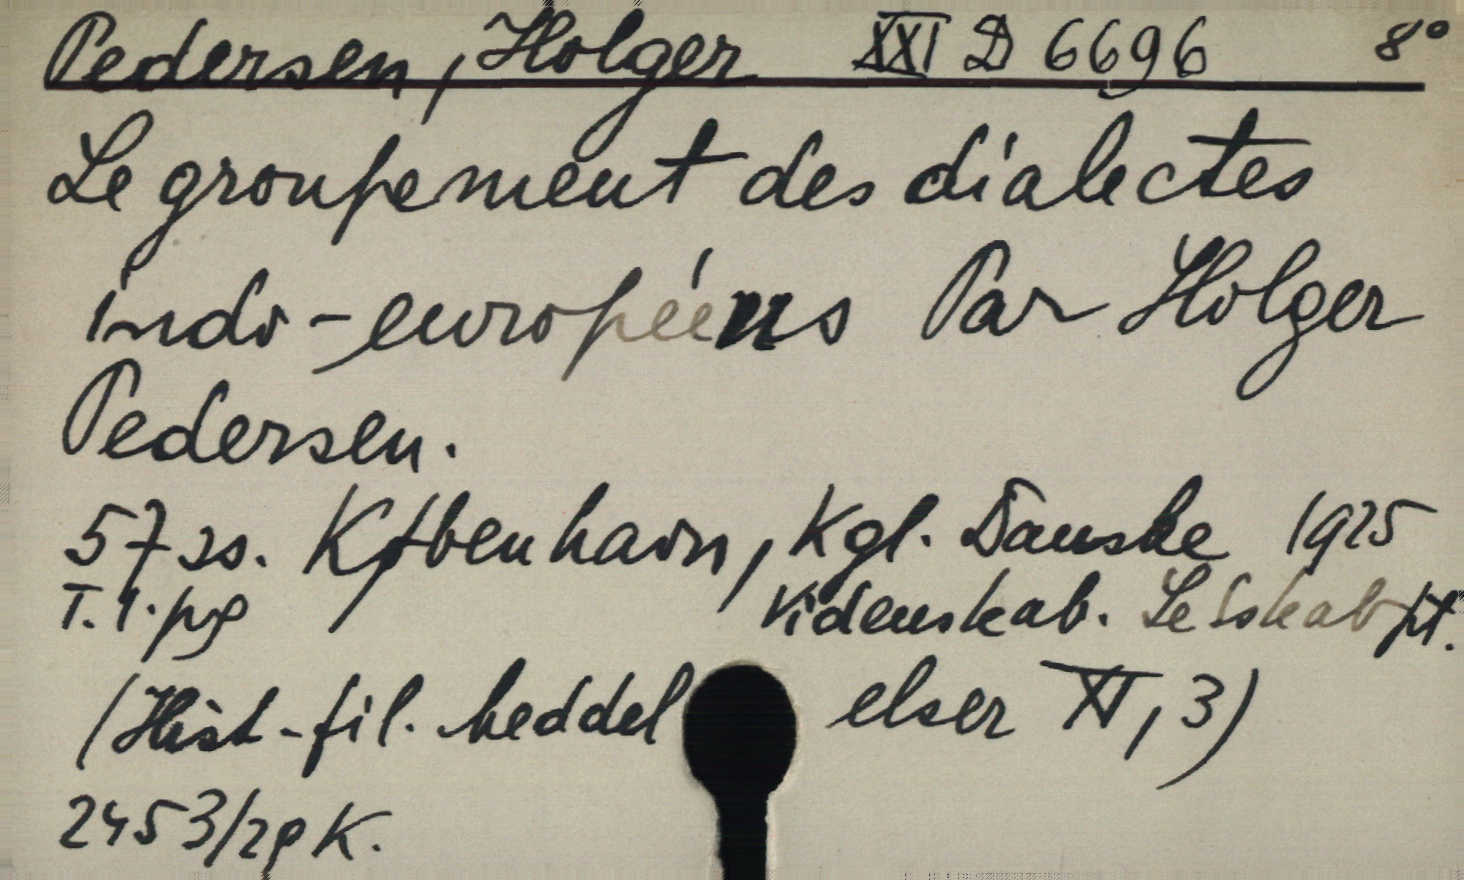 Pedersen, Holger XXI D 6696 8°
Le groupement des dialectes
indo-européens Par Holger
Pedersen.
57 ss. København, Kgl. Danske 1925
T. 1. pg Videnskab. Selskab
(Hist-fil. Meddelelser XI, 3)
2453/29 K.